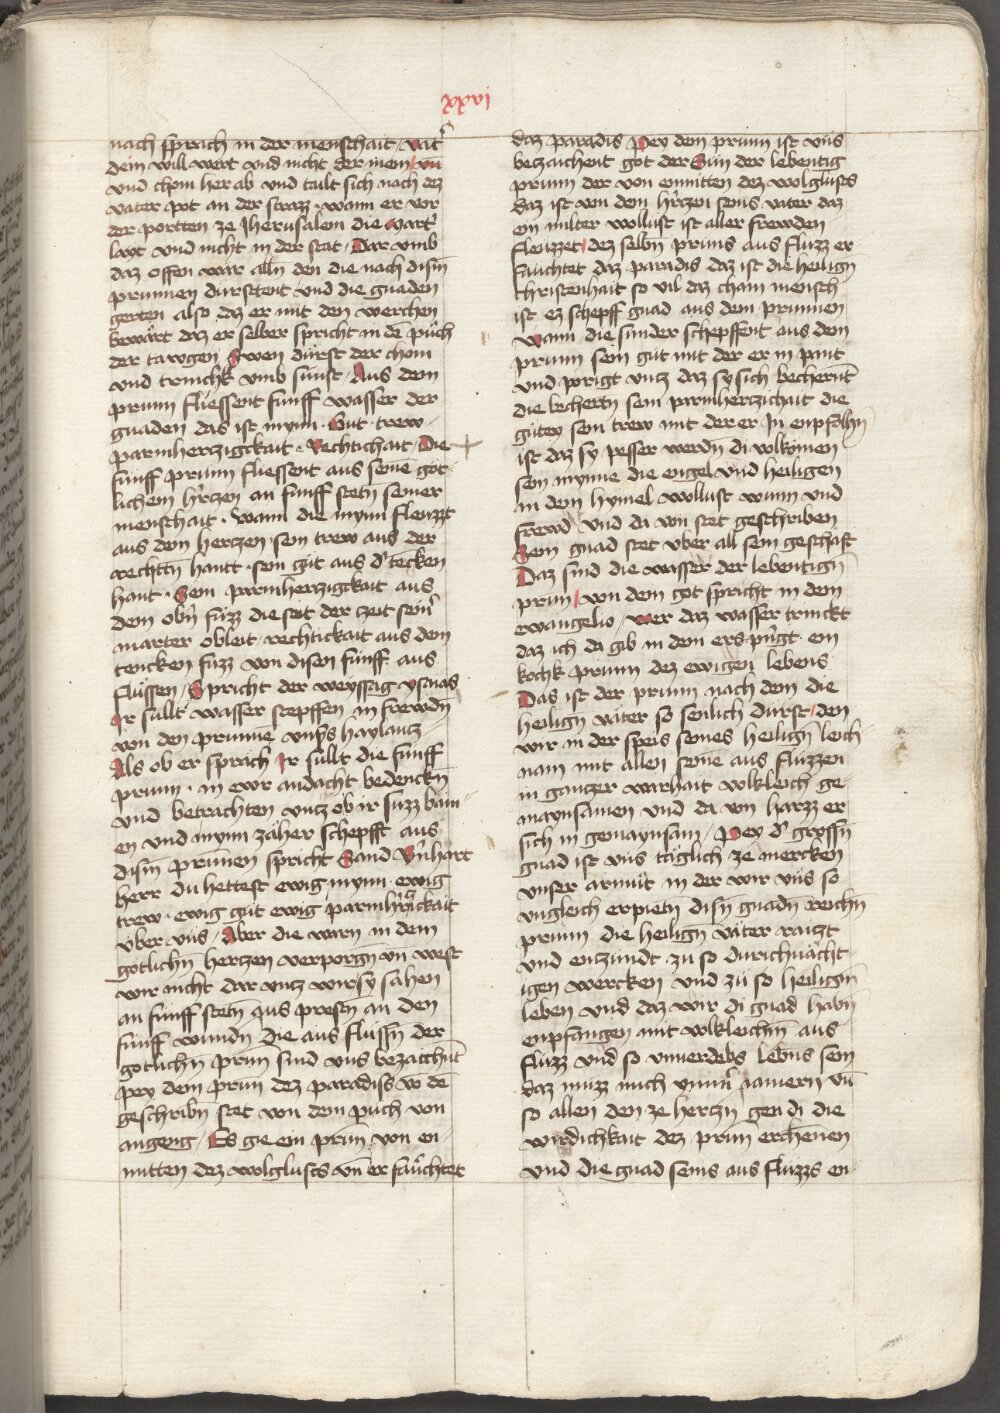 xxvi
nach sprach in der menschait / vatʼ
dein will wert vnd nicht der mein / vn̄
vnd chom her ab vnd tailt sich nach dez
vater pot an der strazz · wann er vor
der portten ze Jherusalem die martʼ
layt vnd nicht in der stat / Dar vmb
daz offen war alln den die nach dism̄
prunnen durstent vnd die gnaden
gerten also daz er mit den werchen
bewärt daz er selber spricht in dē püch
der tawgen Swen dürst der chom
vnd trinchk vmb sünst / Aus dem
prunn fliessent fünff wasser der
gnaden das ist mynn · Gut · trew ·
parmhertzigckait · Rechtichait / Die
fünff prunn fliessent aus seinē göt
lichem hʼrczen an fünff stetn̄ seiner
menschait · Wann die mynn fleuzzt
aus dem herczen · sein trew aus der
rechttn̄ hantt · sein güt aus dʼ tecken
hant · Sein parmherzigckait aus
dem obn̄ füzz die seit der zeit seinʼ
marter obleit / rechtickait aus dem
tencken füzz von disen fünff aus
flüssen / Spricht der weyssag ysaias
Ir süllt wasser schepffen in frewdn̄
von den prunnē vnsʼs haylantz
Als ob er sprach Ir süllt die fünff
prunn · in ewr andacht bedenckn̄
vnd betrachten vntz ob ir süzz bain
en vnd mynn zäher schepfft aus
dism̄ prunnen spricht Sand Bʼnhart
herr du hettest ewig mynn · ewig
trew · ewig güt ewig parmhʼtzickait
vber vns / Aber die warn in dem
götlichn̄ hertzen verporgn̄ vn̄ west
wir nicht dar vntz wir sy sahen
an fünff stetn̄ aus prestn̄ an den
fünff wundn̄ die aus flussn̄ der
gotlichn̄ prun̄ sind vns bezaichnt̄
pey dem prun̄ dez paradiss vō dē
geschribn̄ stet von dem püch von
angeng / Es gie ein prun̄ von en
mitten dez wolglusts vn̄ er faücht̄et
daz paradis Pey dem prunn ist vns
bezaichent got der Sun der lebentig
prunn der von enmitten dez wolglusts
daz ist von dem hʼrczen seins vater daz
ein milter wollust ist aller frewden
fleuzzet / dez selbn̄ pruns aus fluzz er
fauchtet daz paradis daz ist die heilign̄
christenhait so vil daz chain mensch
ist ez schepff gnad aus dem prunnen
Wann die sunder schepffent aus dem
prunn sein güt mit der er in pait
vnd porigt vntz daz sy sich bechernt
die bechertn̄ sein parmhertzichait die
gütey sein trew mit der er In enpfalhn̄
ist daz sy pesser werdn̄ di volkomen
sein mynne die engel vnd heiligen
in dem hymel wollust wunn vnd
frewd vnd da von stet geschriben
Sein gnad stet vber all sein geschäft
Daz sind die wasser der lebentign̄
prun̄ / von dem got spricht in dem
ewangelio / Wer daz wasser trinckt
daz ich da gib in dem erspʼngt ein
kochk prunn dez ewigen lebens
Das ist der prunn nach dem die
heilign̄ väter so senlich durst / den
wir in der speis seines heilign̄ leich
nam mit allen seinē aus fluzzen
in gantzer warhait volkleich ge
maynsamen vnd da von harzz er
sich in gemaynsam / Pey dʼ grossn̄
gnad ist vns täglich ze mercken
vnser armüt in der wir vns so
vngleich erpietn̄ disn̄ gnadn̄ reichn̄
prunn die heilign̄ väter raizt
vnd entzundt zu so durichnächt
igen wercken vnd zu so heiligm̄
leben vnd daz wir di gnad habn̄
enpfangen mit volkleichm̄ aus
fluzz vnd so vnuerdebs lebens sein
daz muzz mich ymmʼ iamern vn̄
so allen den ze hertzn̄ gen di die
wirdichkait dez prun̄ erchenen
vnd die gnad seins aus fluzzs en